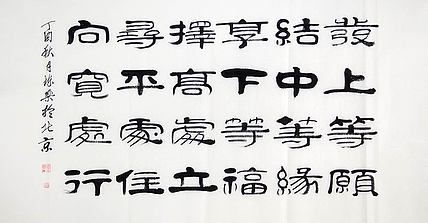 發上等願
結中等緣
享下等福
擇高處立
尋平處住
向寬處行
丁酉秋月
於北京